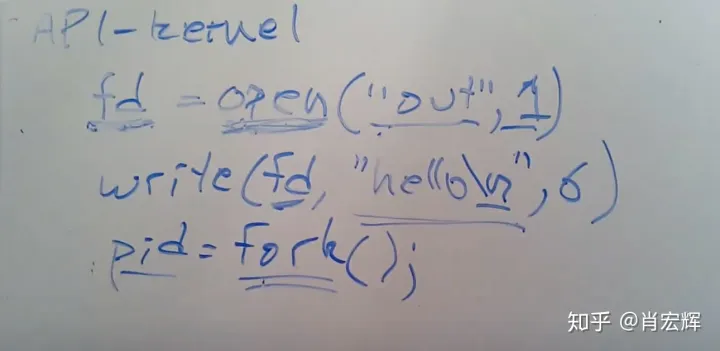 API-kernel
fd = open("out", 1)
write(fd, "hello\n", 6)
pid = fork();
知乎 @肖宏辉